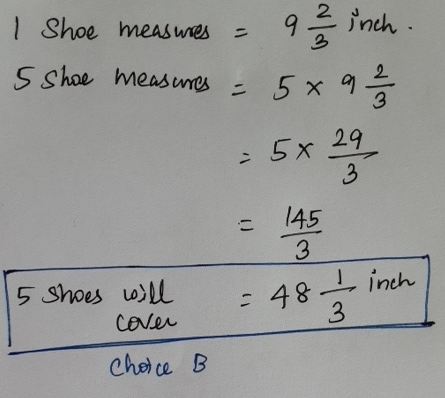 1 Shoe measures = 9 2/3 inch.
5 Shoe measures = 5 x 9 2/3
= 5 x 29/3
= 145/3
5 shoes will cover = 48 1/3 inch
Choice B